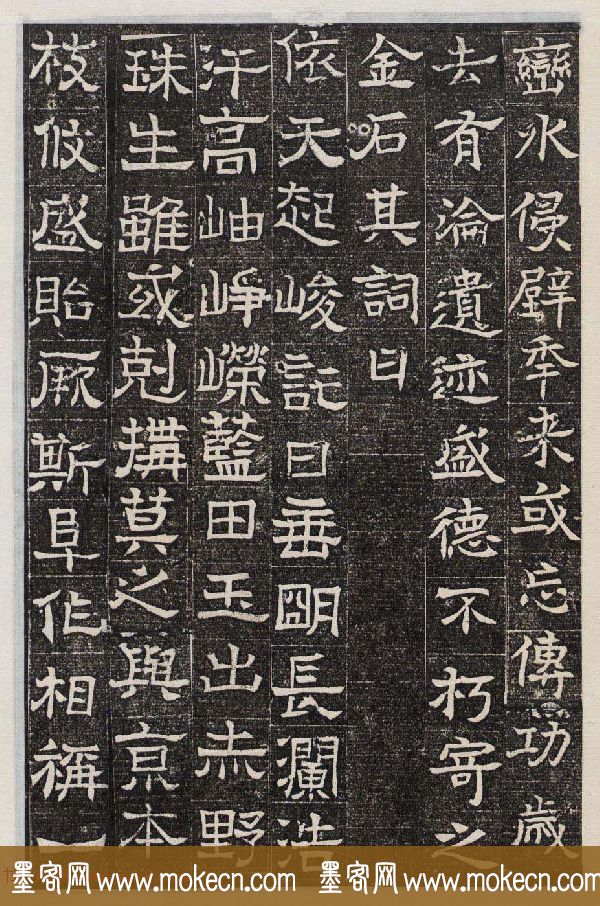 巒水侵壁年来或忘傳功歲
去有淪遺迹盛德不朽寄之
金石其詞曰
依天起峻託日垂明長瀾浩
汗高岫崢嶸藍田玉出赤野
珠生雖或剋搆莫之與京本
枝攸盛貽厥斯阜作相稱一
墨客网 www.mokecn.com 墨客网 www.mokecn.com